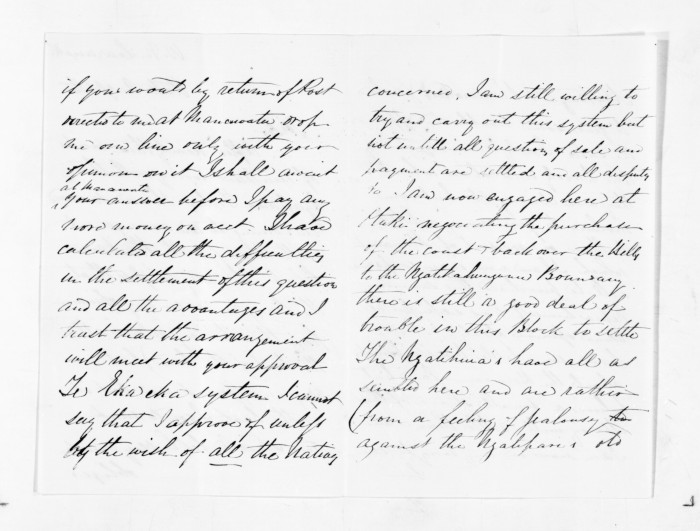 if you would by return of Post
directed to me at Manawatu drop
me one line only with your
opinion on it I shall await
at Manawatu
your answer before I pay any
more money on acct. I have
calculated all the difficulties
in the settlement of this question
and all the advantages and I
trust that the arrangement
will meet with your approval
Te system I cannot
say that I approve of unless
by the wish of all the Natives
concerned. I am still willing to
try and carry out this system but
not until all question of sale and
payment are settled and all disputes
I am now engaged here at
negociating the purchase
of the coast & back over the Hills
to the Boundary
there is still a good deal of
trouble in this Block to settle
The Ngatihuia's have all as
sembled here and are rather
(from a feeling of jealousy to
against the old